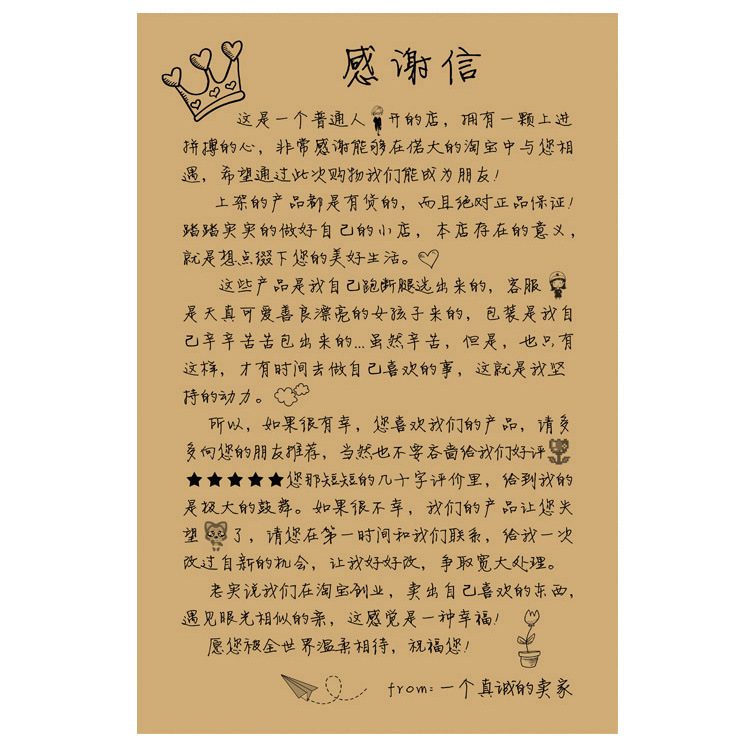 感谢信
这是一个普通人开的店，拥有一颗上进
拼搏的心，非常感谢能够在偌大的淘宝中与您相
遇，希望通过此次购物我们能成为朋友！
上架的产品都是有货的，而且绝对正品保证！
踏踏实实的做好自己的小店，本店存在的意义，
就是想点缀下您的美好生活。
这些产品是我自己跑断腿选出来的，客服
是天真可爱善良漂亮的女孩子来的，包装是我自
己辛辛苦苦包出来的...虽然辛苦，但是，也只有
这样，才有时间去做自己喜欢的事，这就是我坚
持的动力。
所以，如果很有幸，您喜欢我们的产品，请多
多向您的朋友推荐，当然也不要吝啬给我们好评
★★★★★您那短短的几十字评价里，给到我的
是极大的鼓舞。如果很不幸，我们的产品让您失
望了，请您在第一时间和我们联系，给我一次
改过自新的机会，让我好好改，争取宽大处理。
老实说我们在淘宝创业，卖出自己喜欢的东西，
遇见眼光相似的亲，这感觉是一种幸福！
愿您被全世界温柔相待，祝福您！
from:一个真诚的卖家